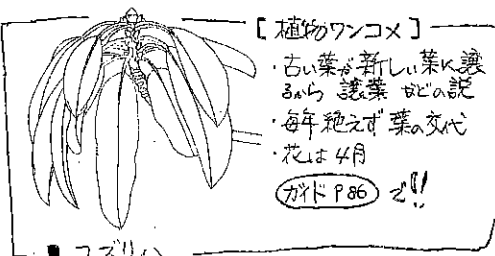 [植物ワンコメ]
・古い葉が新しい葉に譲
るから 譲葉 などの説
・毎年絶えず葉の交代
・花は4月
ガイド P86 で!!
■ユズリハ